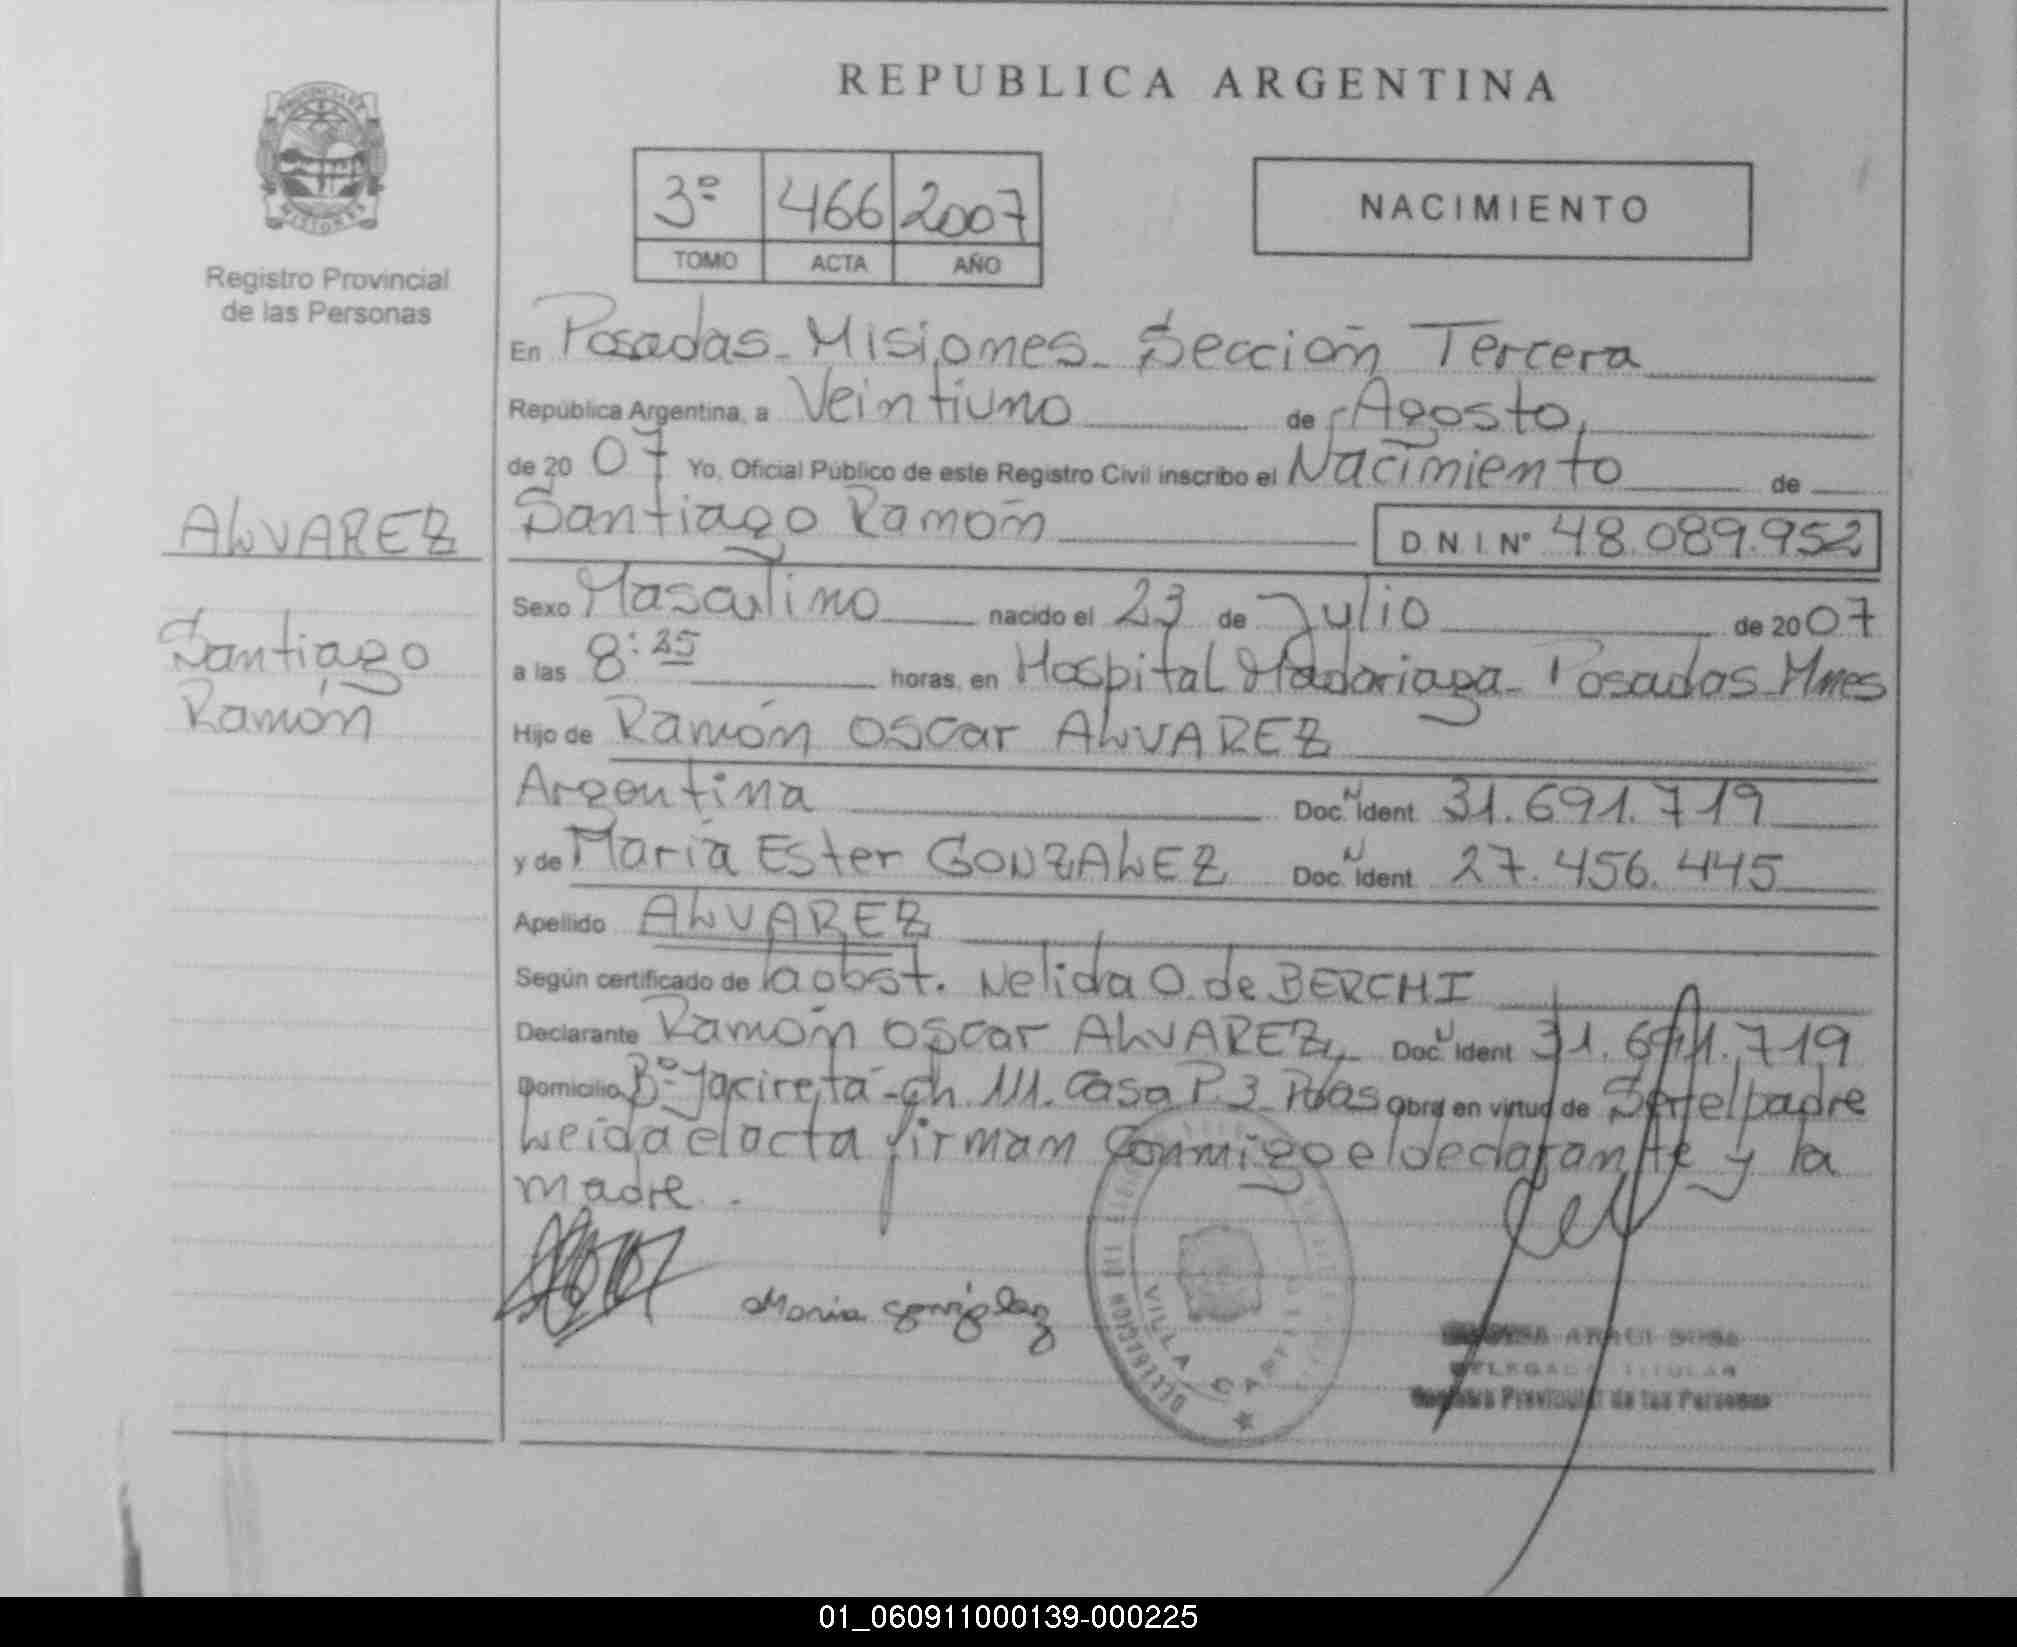 REPUBLICA ARGENTINA
3º 466 2007
TOMO ACTA AÑO
NACIMIENTO
MISIONES
Registro Provincial
de las Personas
En Posadas - Misiones - Sección Tercera
República Argentina, a Veintiuno de Agosto,
de 2007 Yo, Oficial Público de este Registro Civil inscribo el Nacimiento de
ALVAREZ
Santiago Ramón
Santiago Ramón D N I Nº 48.089.952
Sexo Masculino nacido el 23 de Julio de 2007
a las 8:35 horas, en Hospital Madariaga - Posadas Mnes
Hijo de Ramón Oscar ALVAREZ
Argentina Doc. N Ident. 31.691.719
y de María Ester GONZALEZ Doc. N Ident. 27.456.445
Apellido ALVAREZ
Según certificado de la obst. Nelida O. de BERCHI
Declarante Ramón Oscar ALVAREZ, Doc. N Ident 31.691.719
Domicilio Bº Yacireta - ch 111. Casa P. 3 Pdas Obra en virtud de Ser el padre
Leida el acta firman conmigo el declarante y la
madre.
Maria gonzalez
VILLA CABELLO
DELEGADA TITULAR
Registro Provincial de las Personas
01_060911000139-000225